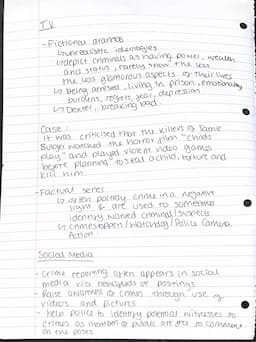 TV
- Fictional dramas
↳ unrealistic ideologies
↳ depict criminals as having power, wealth
and status, rarely show the less
the less glamorous aspects of their lives
↳ being arrested, living in prison, emotionally
burdens, regrets, fear, depression
↳ Dexter, breaking bad
Case:
It was criticised that the killers of Jamie
Bulger watched the horror film "childs
play" and played violent video games
before planning to steal a child, torture and
kill him
- Factual series
↳ often portray crime in a negative
light & are used to sometimes
identify named criminal/suspects
↳ crimestoppers/Watchdog/Police Camera
Action
Social Media
- Crime reporting often appears in social
media via newsfeeds or postings
- Raise awareness of crimes through use of
videos and pictures
- help police to identify potential witnesses to
crimes as members of public are free to comment
on the posts